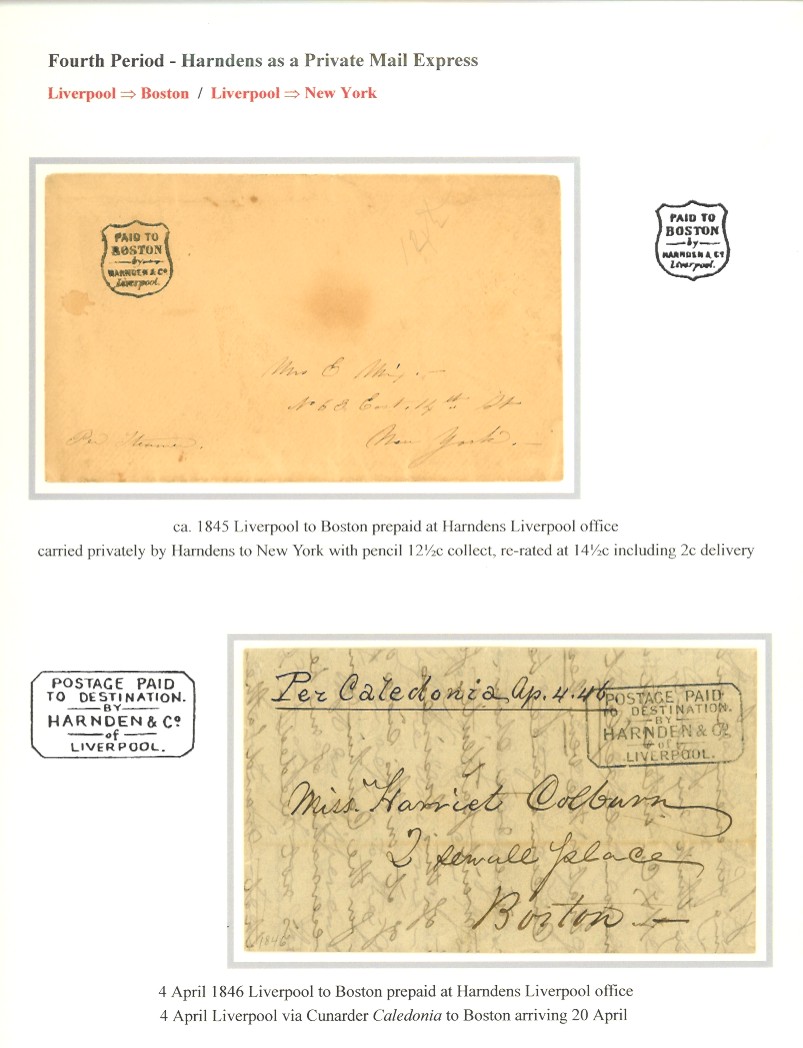 Fourth Period - Harndens as a Private Mail Express
Liverpool ⇒ Boston / Liverpool ⇒ New York
PAID TO
BOSTON
by
HARNDEN & Cº
Liverpool.
PAID TO
BOSTON
by
HARNDEN & Cº
Liverpool.
Mrs E
Nº 63 East. 14th St
New York.
Per Steamer.
ca. 1845 Liverpool to Boston prepaid at Harndens Liverpool office
carried privately by Harndens to New York with pencil 12½c collect, re-rated at 14½c including 2c delivery
POSTAGE PAID
TO DESTINATION.
BY
HARNDEN & Cº
of
LIVERPOOL.
Per Caledonia Ap. 4. 46
POSTAGE PAID
TO DESTINATION.
BY
HARNDEN & Cº
of
LIVERPOOL.
Miss. Harriet Colburn
2 sewall place
Boston
1846
4 April 1846 Liverpool to Boston prepaid at Harndens Liverpool office
4 April Liverpool via Cunarder Caledonia to Boston arriving 20 April